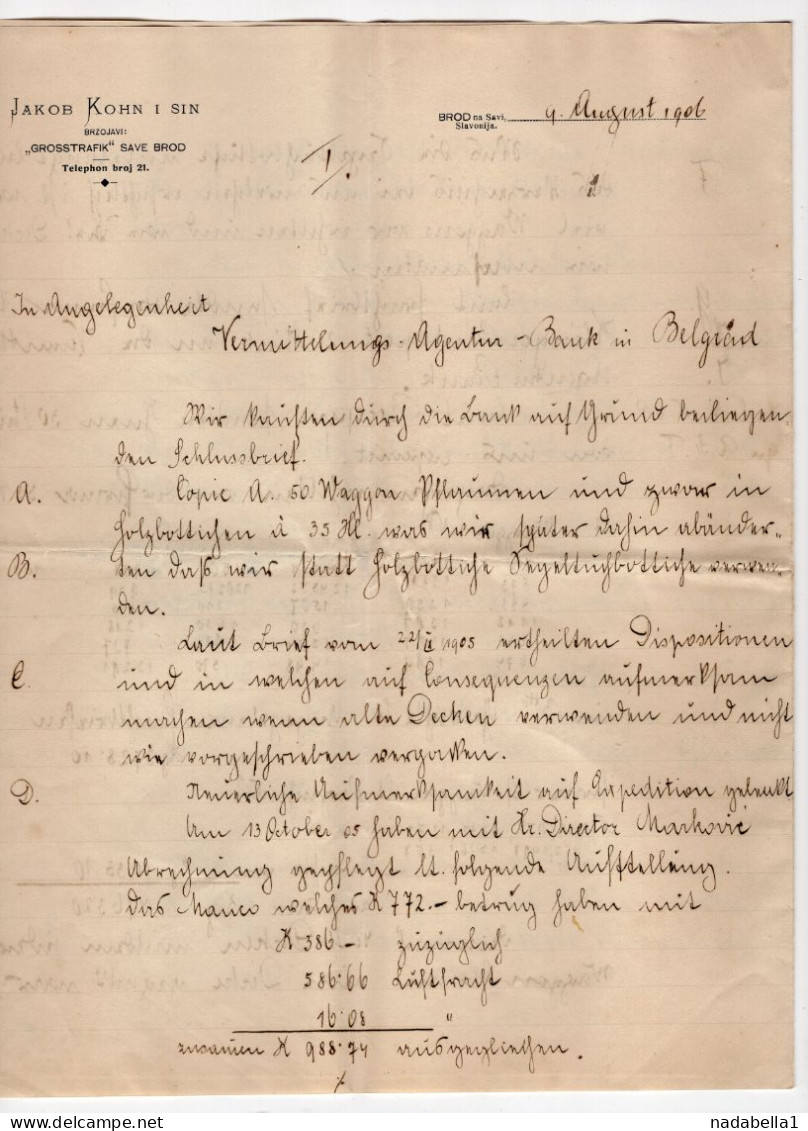 JAKOB KOHN I SIN
BRZOJAVI:
„GROSSTRAFIK“ SAVE BROD
Telephon broj 21.
BROD na Savi, 9. August 1906
Slavonija.
I/.
1
In Angelegenheit
Vermittelungs-Agentur-Bank in Belgrad
Wir kauften durch die Bank auf Grund beiliegen-
den Schlussbrief.
A. Copie A. 50 Waggon Pflaumen und zwar in
Holzbottichen à 35 Hl. was wir später dahin abänder-
B. ten daß wir statt Holzbottiche Segeltuchbottiche verwen-
den.
Laut Brief vom 22/ 1905 ertheilten Dispositionen
C. und in welchen auf Consequenzen aufmerksam
machen wenn alte Decken verwenden und nicht
wie vorgeschrieben
D. Neuerliche Aufmerksamkeit auf Expedition gelenkt
Am 13 October 05 haben mit Hr. Director Marković
Abrechnung gepflegt lt. folgende Aufstellung.
Das Manco welches K 772.- betrug haben mit
K 386- zuzüglich
586·66
16·08 "
K 988·74 ausgegliechen.
nadabella1